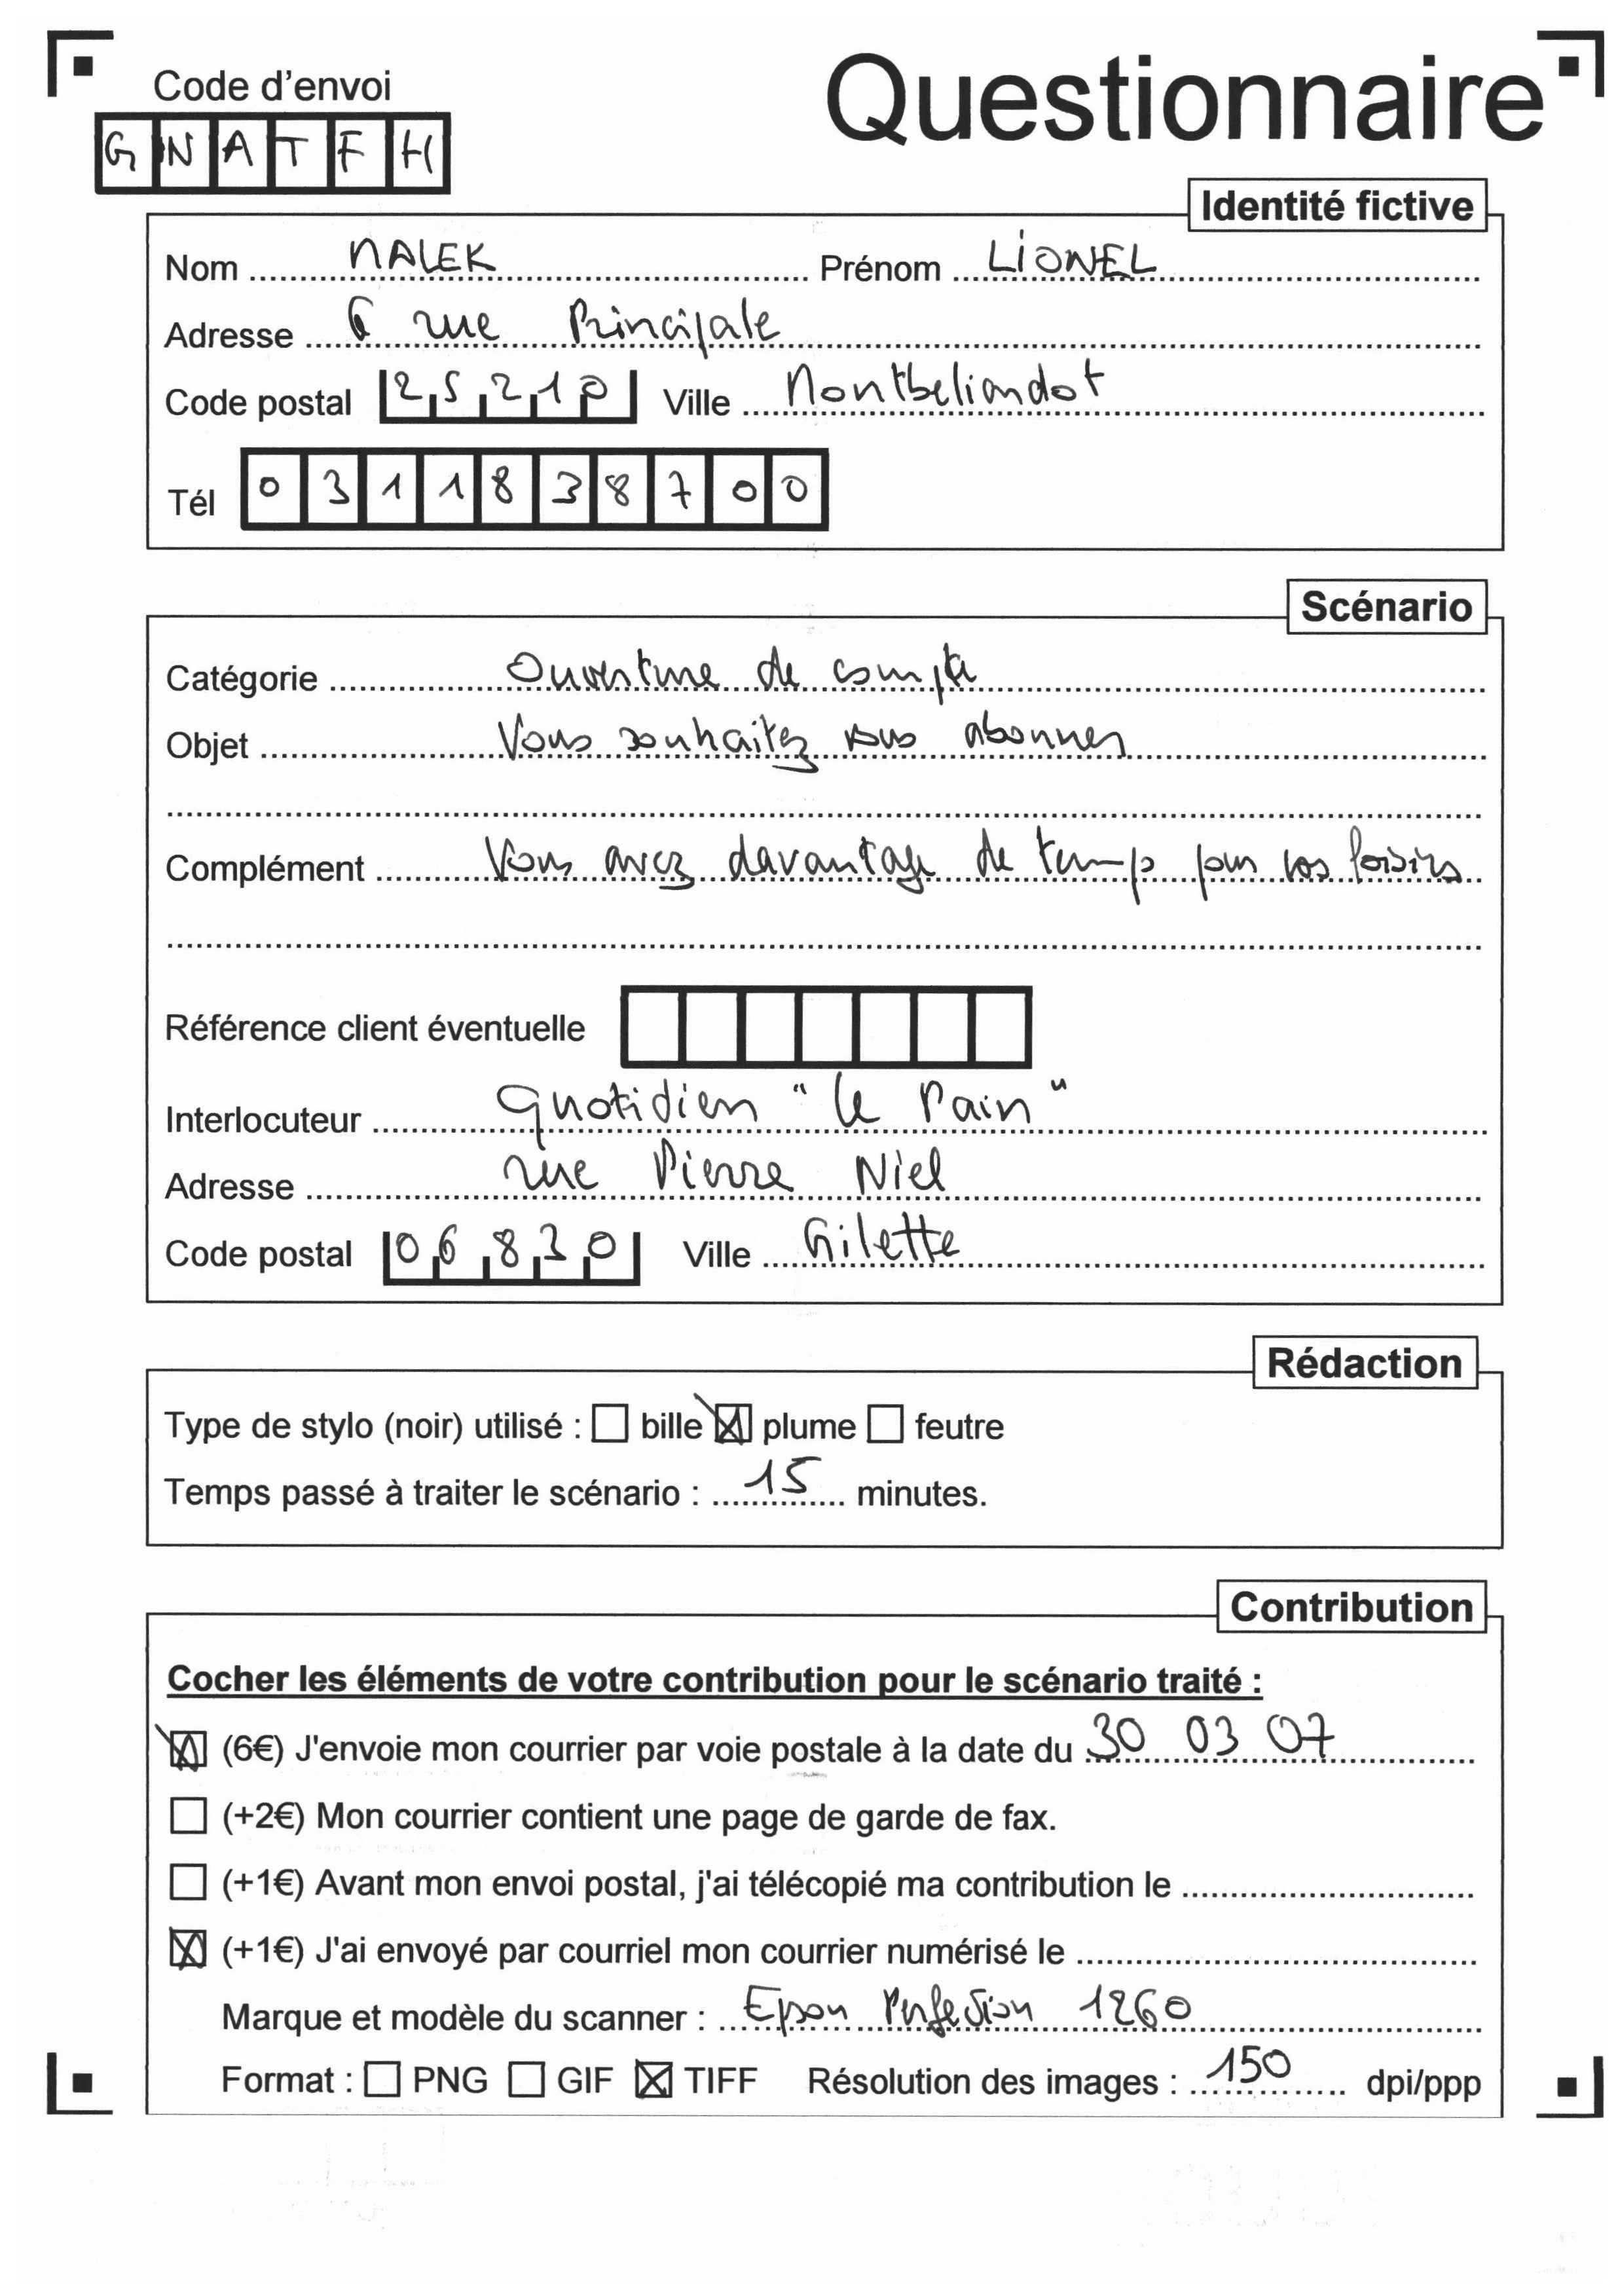 Code d'envoi
Questionnaire
GNATFH
Identité fictive
Nom NALEK Prénom LIONEL
Adresse 6 rue Principale
Code postal 25210 Ville Montbeliardot
Tél 0311838700
Scénario
Catégorie Ouverture de compte
Objet Vous souhaitez vous abonner
Complément Vous avez davantage de temps pour vos loisirs
Référence client éventuelle
Interlocuteur quotidien "Le Pain"
Adresse rue Pierre Niel
Code postal 06830 Ville Gilette
Rédaction
Type de stylo (noir) utilisé : ☐ bille ☒ plume ☐ feutre
Temps passé à traiter le scénario : 15 minutes.
Contribution
Cocher les éléments de votre contribution pour le scénario traité :
☒ (6€) J'envoie mon courrier par voie postale à la date du 30 03 07
☐ (+2€) Mon courrier contient une page de garde de fax.
☐ (+1€) Avant mon envoi postal, j'ai télécopié ma contribution le
☒ (+1€) J'ai envoyé par courriel mon courrier numérisé le
Marque et modèle du scanner : Epson Perfection 1260
Format : ☐ PNG ☐ GIF ☒ TIFF Résolution des images : 150 dpi/ppp